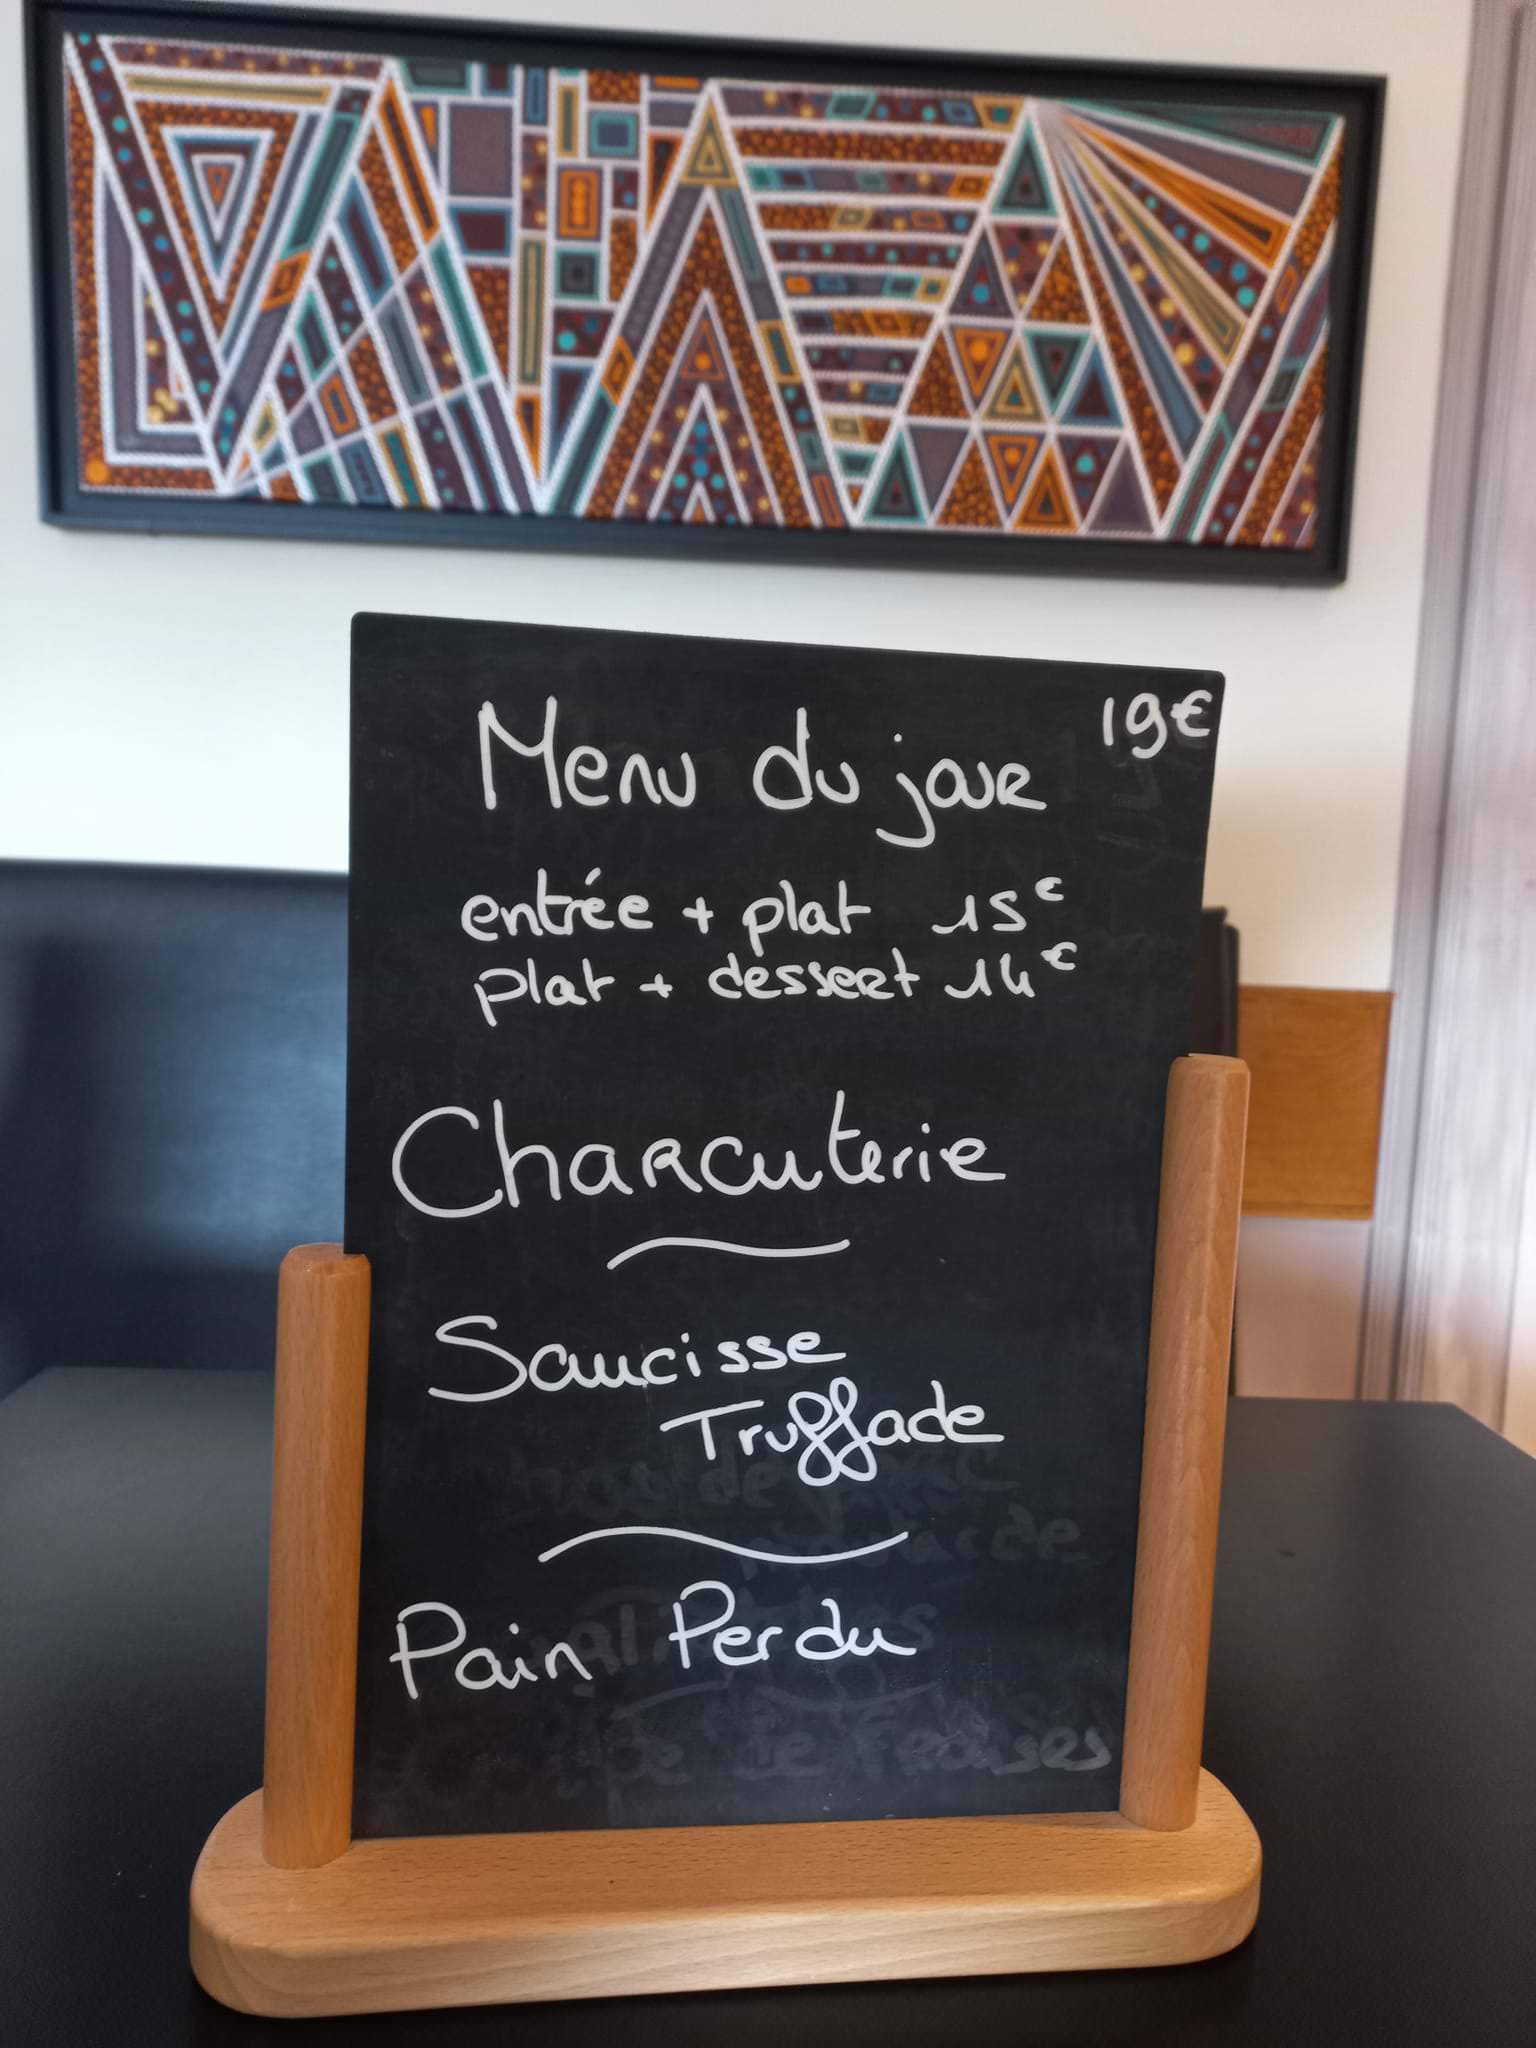 Menu du jour 19€
entrée + plat 15€
plat + dessert 14€
Charcuterie
Saucisse
Truffade
Pain Perdu